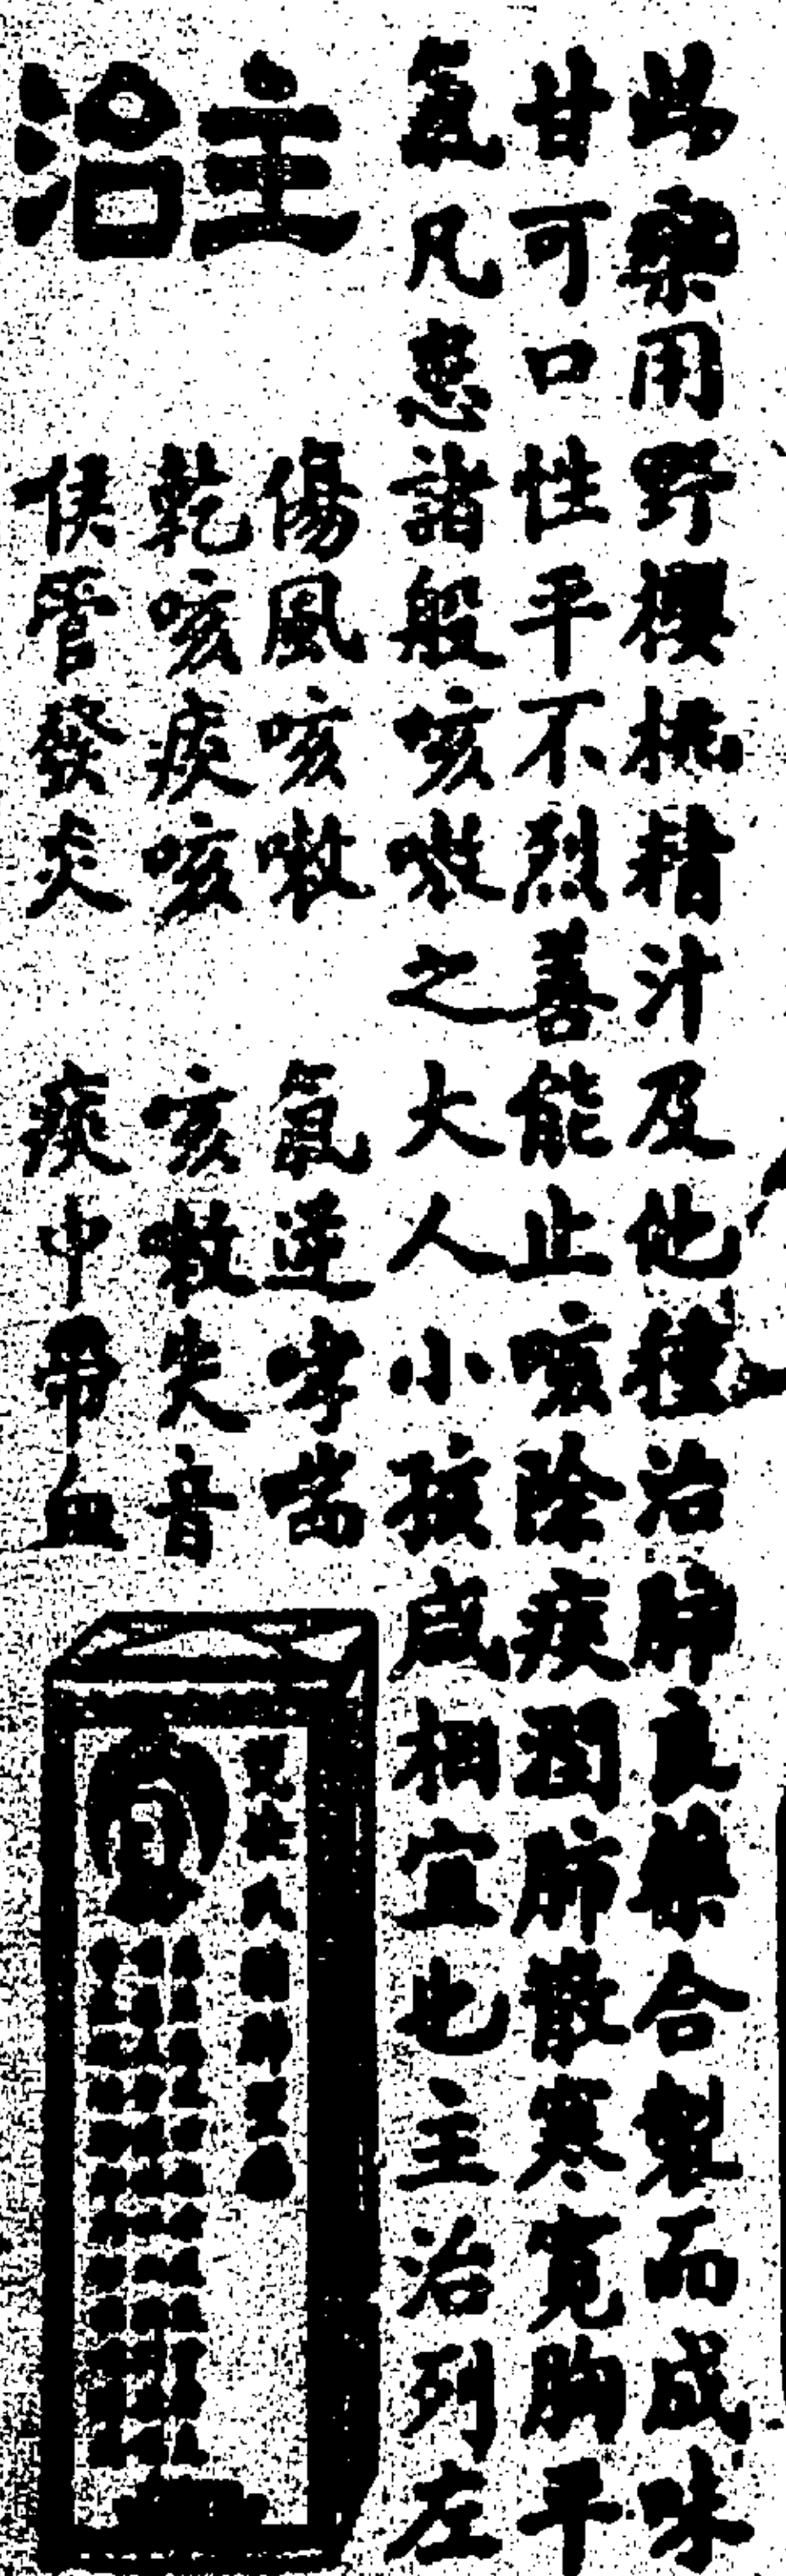 此藥用野櫻桃精汁及他種治肺良藥合製而成味
甘可口性平不烈善能止咳除痰潤肺散寒寬胸平
氣凡患諸般咳嗽之大人小孩咸相宜也主治列左
主治
傷風咳嗽　氣逆哮喘
乾咳痰咳　咳嗽失音
喉管發炎　痰中帶血